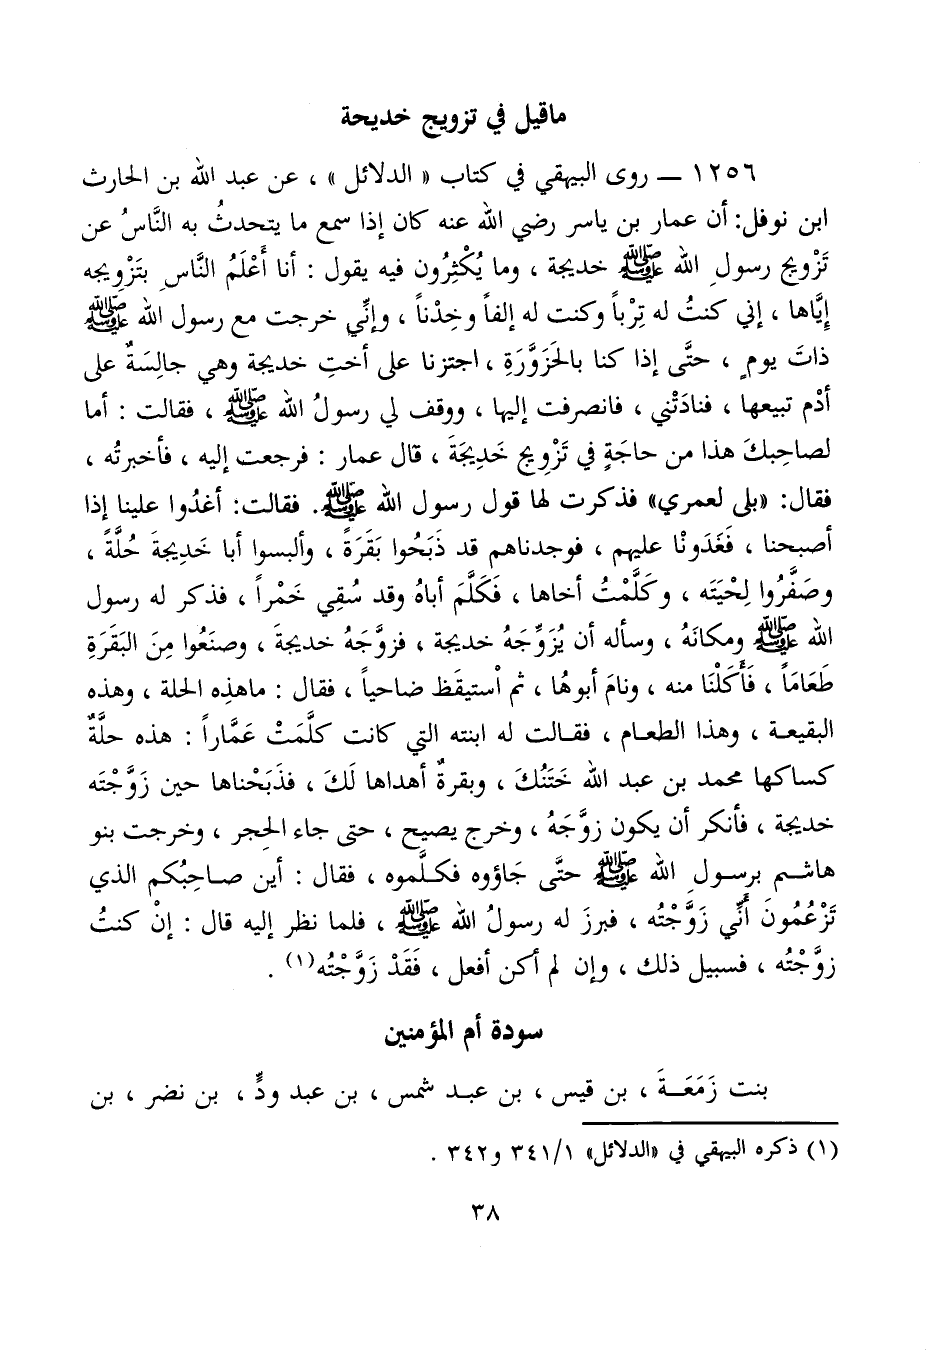 ماقيل في تزويج خديحة
١٢٥٦ ــ روى البيهقي في كتاب « الدلائل » ، عن عبد الله بن الحارث
ابن نوفل: أن عمار بن ياسر رضي الله عنه كان إذا سمع ما يتحدثُ به النَّاسُ عن
تَزْويج رسولِ الله ﷺ خديجة ، وما يُكْثِرُون فيه يقول : أنا أَعْلَمُ النَّاسِ بتَزْوِيجه
إيَّاها ، إني كنتُ له تِرْباً وكنت له إلفاً وخِدْناً ، وإنِّي خرجت مع رسول الله ﷺ
ذاتَ يومٍ ، حتَّى إذا كنا بالحَزَوَّرَةِ ، اجتزنا على أختِ خديجة وهي جالِسَةٌ على
أدْم تبيعها ، فنادَتْني ، فانصرفت إليها ، ووقف لي رسولُ الله ﷺ ، فقالت : أما
لصاحِبكَ هذا من حاجَةٍ في تَزْوِيج خَدِيجَةَ ، قال عمار : فرجعت إليه ، فأخبرتُه ،
فقال: «بلى لعمري» فذكرت لها قول رسول الله ﷺ. فقالت: أغدُوا علينا إذا
أصبحنا ، فَغَدَونْا عليهم ، فوجدناهم قد ذَبَحُوا بَقَرَةً ، وألبسوا أبا خَدِيجةَ حُلَّةً ،
وصَفَّرُوا لِحْيَتَه ، وكَلَّمْتُ أخاها ، فَكَلَّمَ أباهُ وقد سُقِي خَمْراً ، فذكر له رسول
الله ﷺ ومكانَهُ ، وسأله أن يُزَوِّجَهُ خديجة ، فزوَّجَهُ خديجةَ ، وصنَعُوا مِنَ البَقَرَةِ
طَعَامَاً ، فَأَكَلْنَا منه ، ونامَ أبوهُا ، ثم اْستيقَظ ضاحياً ، فقال : ماهذِه الحلة ، وهذه
البقيعة ، وهذا الطعام ، فقالت له ابنته التي كانت كلَّمَتْ عَمَّاراً : هذه حلَّةٌ
كساكها محمد بن عبد الله خَتَنُكَ ، وبقرةٌ أهداها لَكَ ، فذَبَحْناها حين زَوَّجْتَه
خديجة ، فأنكر أن يكون زوَّجَهُ ، وخرج يصيح ، حتى جاء الحِجر ، وخرجت بنو
هاشم برسولِ الله ﷺ حتَّى جَاؤوه فكلَّموه ، فقال : أين صاحِبُكم الذي
تَزْعُمُونَ أَنِّي زَوَّجْتُه ، فبرزَ له رسولُ الله ﷺ ، فلما نظر إليه قال : إنْ كنتُ
زوَّجْتُه ، فسبيل ذلك ، وإن لم أكن أفعل ، فَقَدْ زَوَّجْتُه(١) .
سودة أم المؤمنين
بنت زَمَعَةَ ، بن قيس ، بن عبد شمس ، بن عبد ودٍّ ، بن نضر ، بن
(١) ذكره البيهقي في «الدلائل» ٣٤١/١ و٣٤٢ .
٣٨